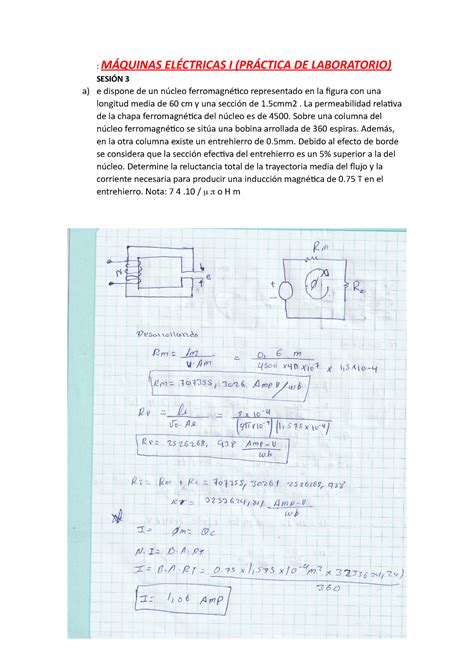 : MÁQUINAS ELÉCTRICAS I (PRÁCTICA DE LABORATORIO)
SESIÓN 3
a) e dispone de un núcleo ferromagnético representado en la figura con una
longitud media de 60 cm y una sección de 1.5cmm2 . La permeabilidad relativa
de la chapa ferromagnética del núcleo es de 4500. Sobre una columna del
núcleo ferromagnético se sitúa una bobina arrollada de 360 espiras. Además,
en la otra columna existe un entrehierro de 0.5mm. Debido al efecto de borde
se considera que la sección efectiva del entrehierro es un 5% superior a la del
núcleo. Determine la reluctancia total de la trayectoria media del flujo y la
corriente necesaria para producir una inducción magnética de 0.75 T en el
entrehierro. Nota: 7 4 .10 / μ π o H m
Rm
N
e
+
-
Ø
Re
Desarrollando
Rm = lm / V.Am = 0,6 m / 4500 x 4π x10⁷ x 1,5x10-4
Rm = 707355,3026 AmpV/wb
Re = le / Vo.Ae = 5x10⁻⁴ / (4πx10⁻⁷)(1,575x10⁻⁴)
Re = 2526268,938 Amp-V / wb
Rt = Rm + Re = 707355,30261 2526268,938
RT = 3233624,241 Amp-V / wb
I = Øm = Øc
N.I = B.A.Rt
I = B.A.RT = 0.75 x 1,575 x10⁻⁴m² x 3233624,24) / 360
I = 1,06 AMP